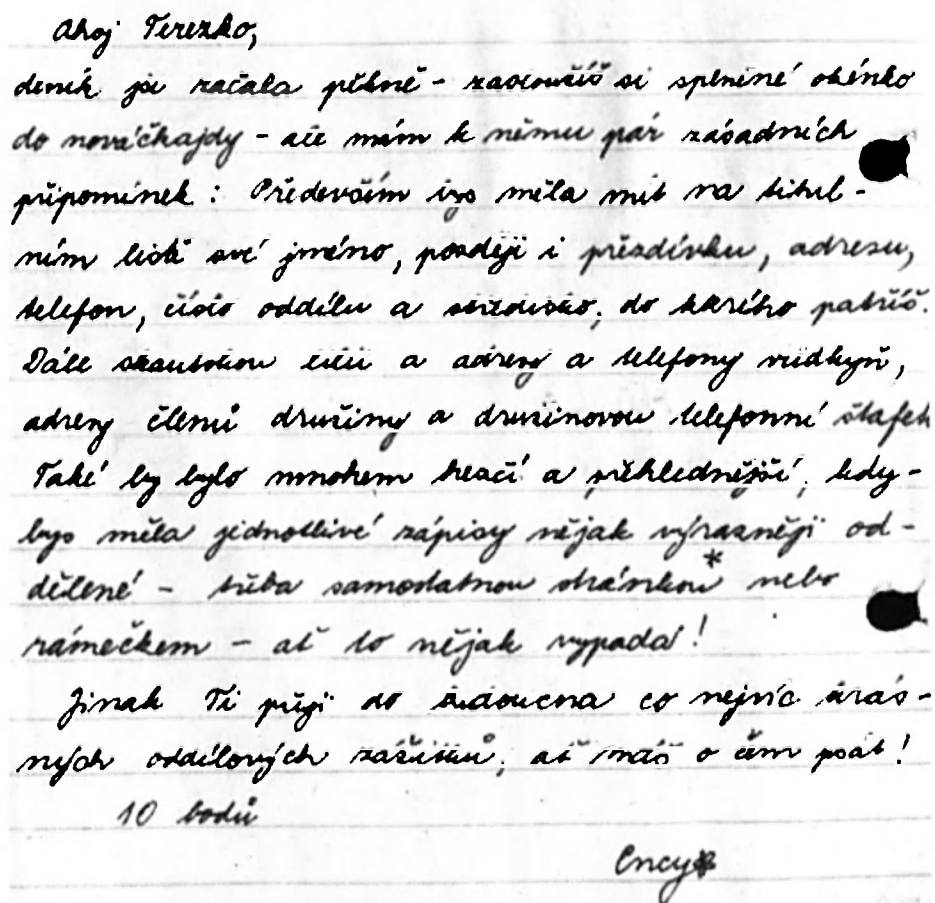 Ahoj Terezko,
deník jsi začala pěkně - zasloužíš si splněné okénko
do nováčkajdy - ale mám k němu pár zásadních
připomínek : Především bys měla mít na titul-
ním listě své jméno, později i přezdívku, adresu,
telefon, číslo oddílu a středisko, do kterého patříš.
Dále skautskou a adresy a telefony vůdkyň,
adresy členů družiny a družinovou telefonní štafet
Také by bylo mnohem hezčí a přehlednější, kdy-
bys měla jednotlivé zápisy nějak výrazněji od-
dělené - třeba samostatnou stránkou* nebo
rámečkem - ať to nějak vypadá !
Jinak Ti přeji do budoucna co nejvíc krás-
ných oddílových zážitků, ať máš o čem psát !
10 bodů